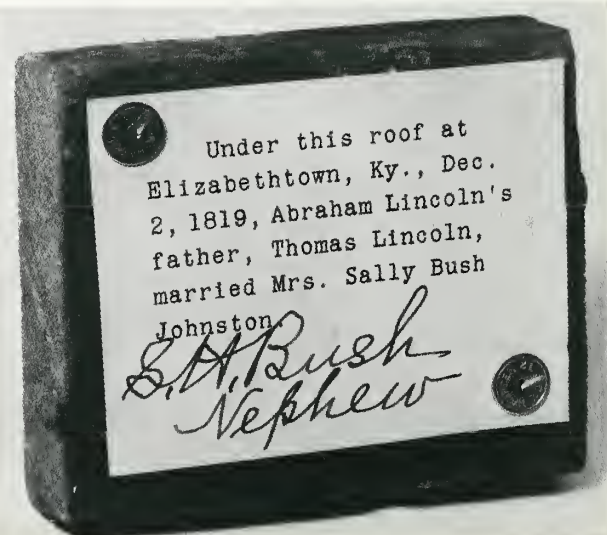 Under this roof at
Elizabethtown, Ky., Dec.
2, 1819, Abraham Lincoln's
father, Thomas Lincoln,
married Mrs. Sally Bush
Johnston
S.H. Bush
Nephew